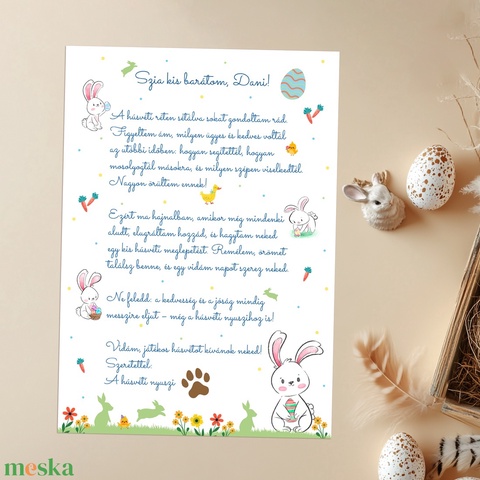 Szia kis barátom, Dani!
A húsvéti réten sétálva sokat gondoltam rád.
Figyeltem ám, milyen ügyes és kedves voltál
az utóbbi időben: hogyan segítettél, hogyan
mosolyogtál másokra, és milyen szépen viselkedtél.
Nagyon örültem ennek!
Ezért ma hajnalban, amikor még mindenki
aludt, elugráltam hozzád, és hagytam neked
egy kis húsvéti meglepetést. Remélem, örömet
találsz benne, és egy vidám napot szerez neked.
Ne feledd: a kedvesség és a jóság mindig
messzire eljut – még a húsvéti nyuszihoz is!
Vidám, játékos húsvétot kívánok neked!
Szeretettel:
A húsvéti nyuszi
meska